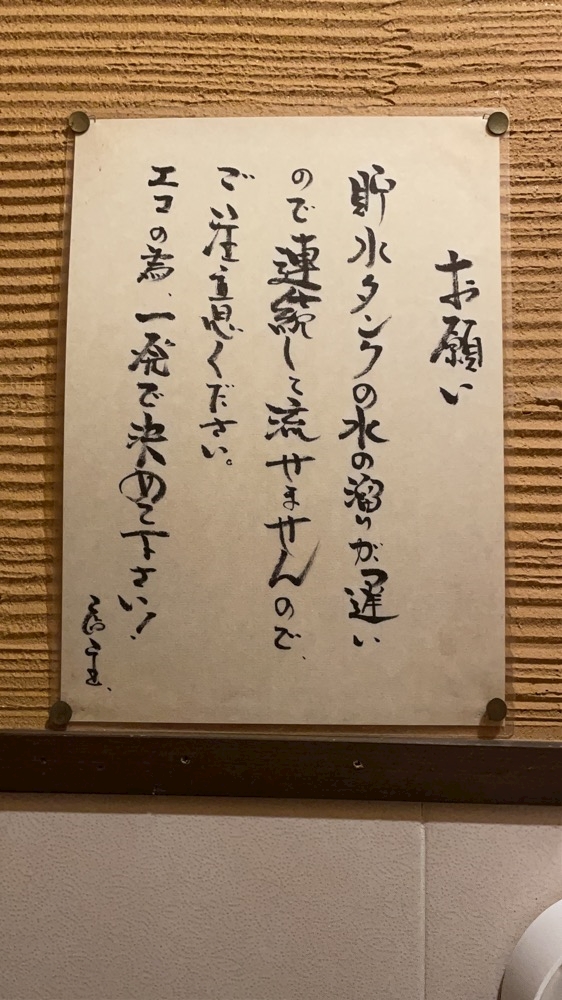 お願い
貯水タンクの水の溜りが遅い
ので連続して流せませんので、
ご注意ください。
エコの為、一発で決めて下さい!